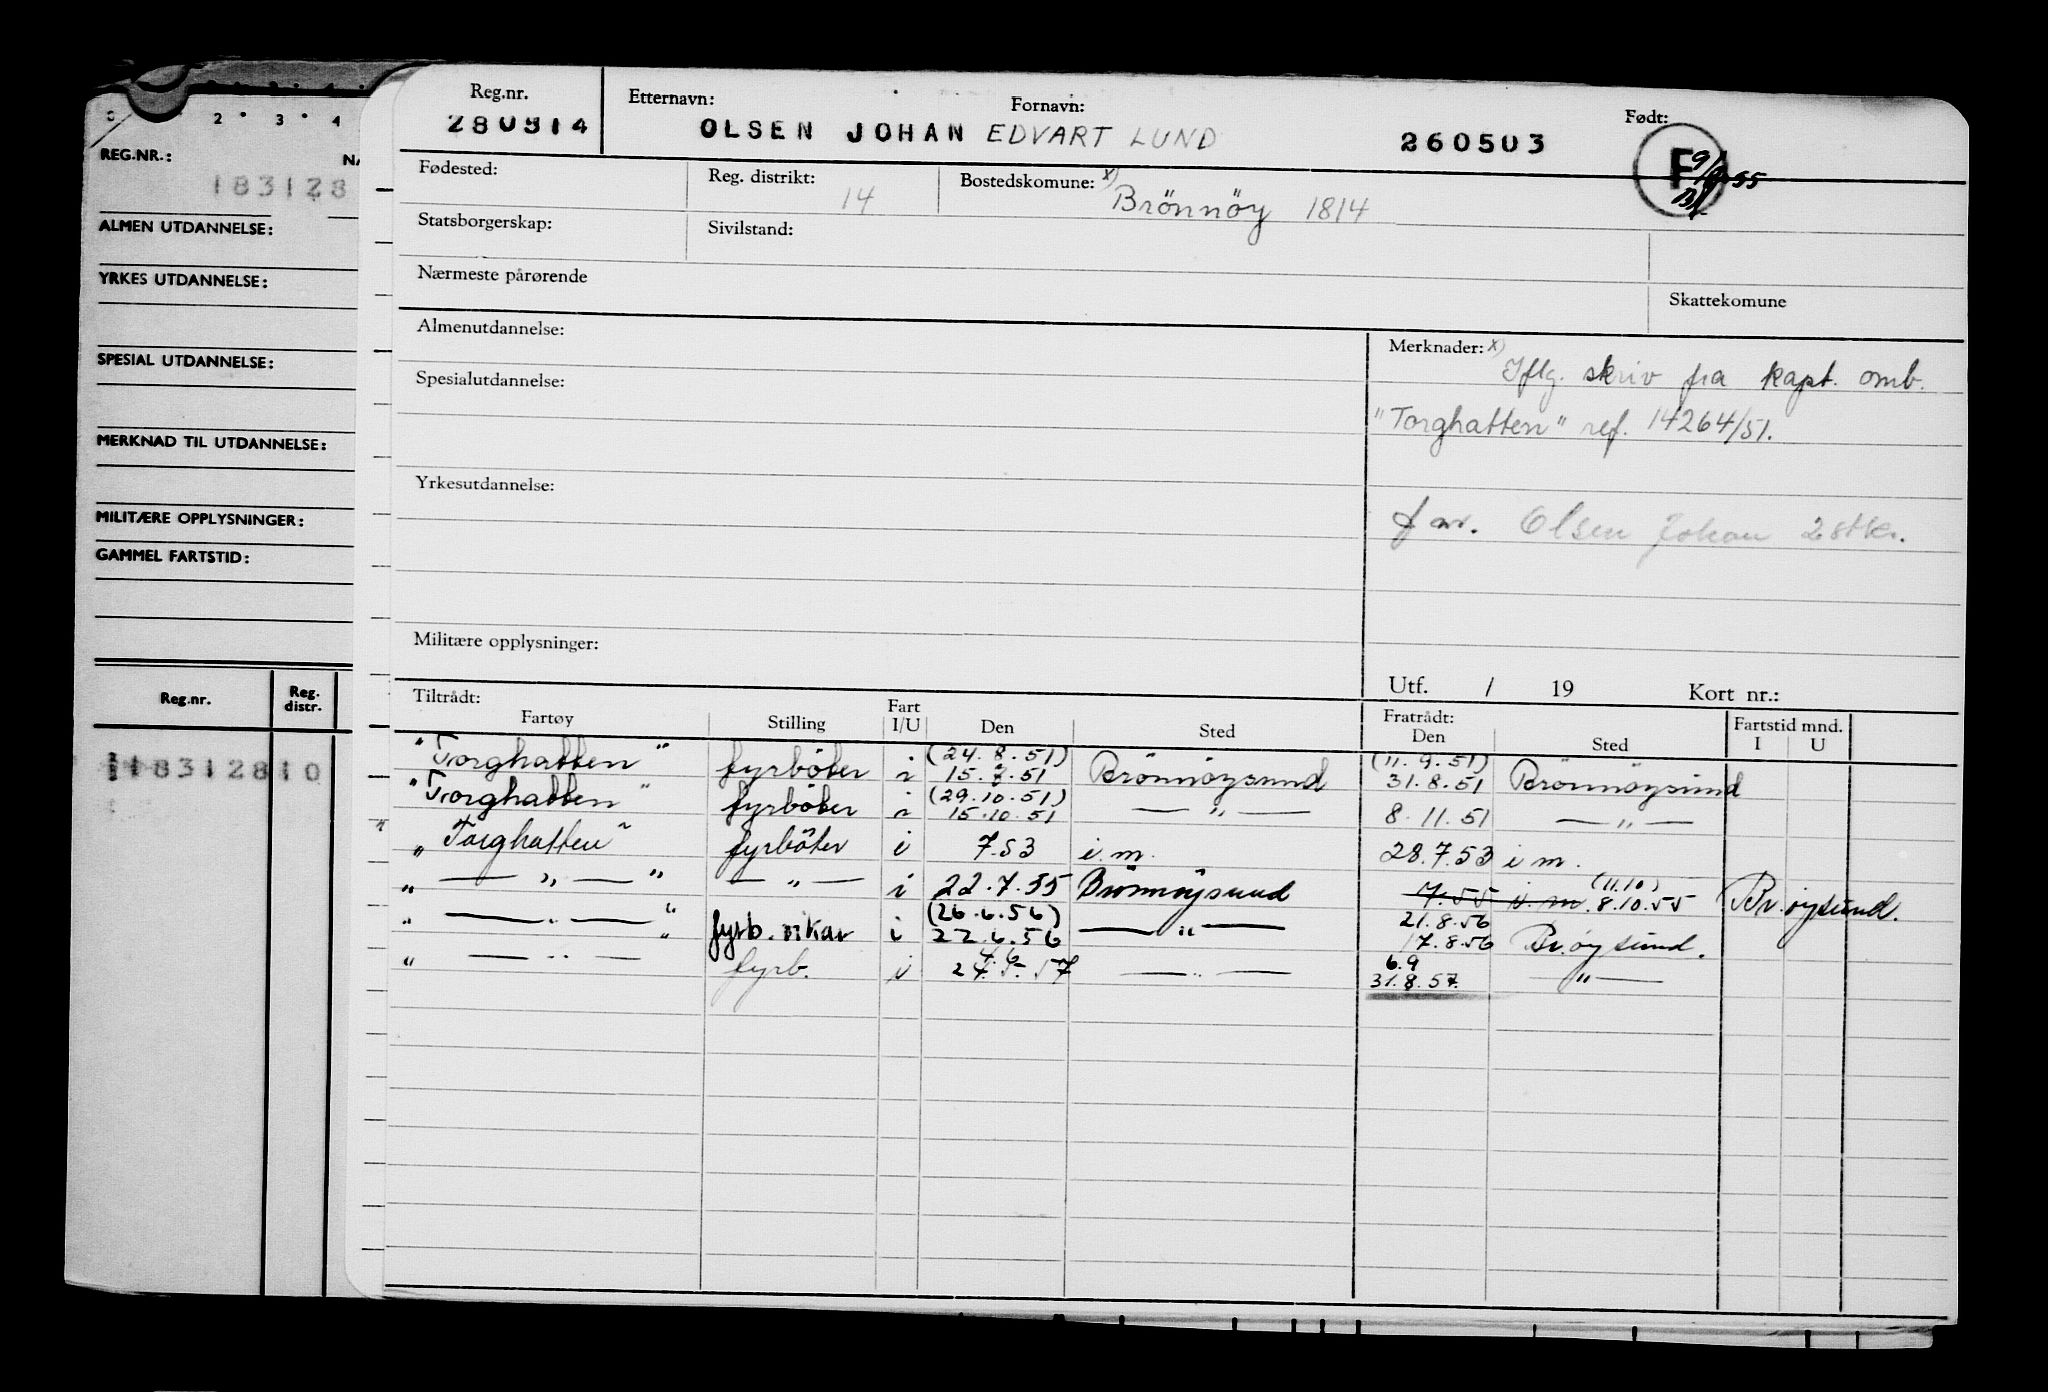 C 2 • 3 • 4
REG.NR.: NA
183128
ALMEN UTDANNELSE:
YRKES UTDANNELSE:
SPESIAL UTDANNELSE:
MERKNAD TIL UTDANNELSE:
MILITÆRE OPPLYSNINGER:
GAMMEL FARTSTID:
Reg.nr. Reg. distr.
18312810
Reg.nr. Etternavn: Fornavn: Født:
280914 OLSEN JOHAN EDVART LUND 260503
F 9/9-55
Fødested: Reg. distrikt: 14 Bostedskomune: x) Brönnöy 1814
Statsborgerskap: Sivilstand:
Nærmeste pårørende Skattekomune
Almenutdannelse: Merknader: x)
Iflg. skriv fra kapt. omb.
Spesialutdannelse: "Torghatten" ref. 14264/51.
Yrkesutdannelse:
Olsen Johan 2 stk.
Militære opplysninger:
Utf. / 19 Kort nr.:
Tiltrådt: Fratrådt: Fartstid mnd.
Fartøy Stilling Fart I/U Den Sted Den Sted I U
"Torghatten" fyrböter i (24.8.51) 15.7.51 Brönnöysund (11.9.51) 31.8.51 Brönnöysund
"Torghatten" fyrböter i (29.10.51) 15.10.51 — " — 8.11.51 — " —
"Torghatten" fyrböter i 7.53 i.m. 28.7.53 i m.
" — " — " — " — i 22.7.55 Brönnöysund 7.55 i. m (11.10) 8.10.55 Br.øysund.
" — " — " fyrb. vikar i (26.6.56) 22.6.56 — " — 21.8.56 17.8.56 Br.øysund.
" — " — fyrb. i 4.6 24.5.57 — " — 6.9 31.8.57. — " —